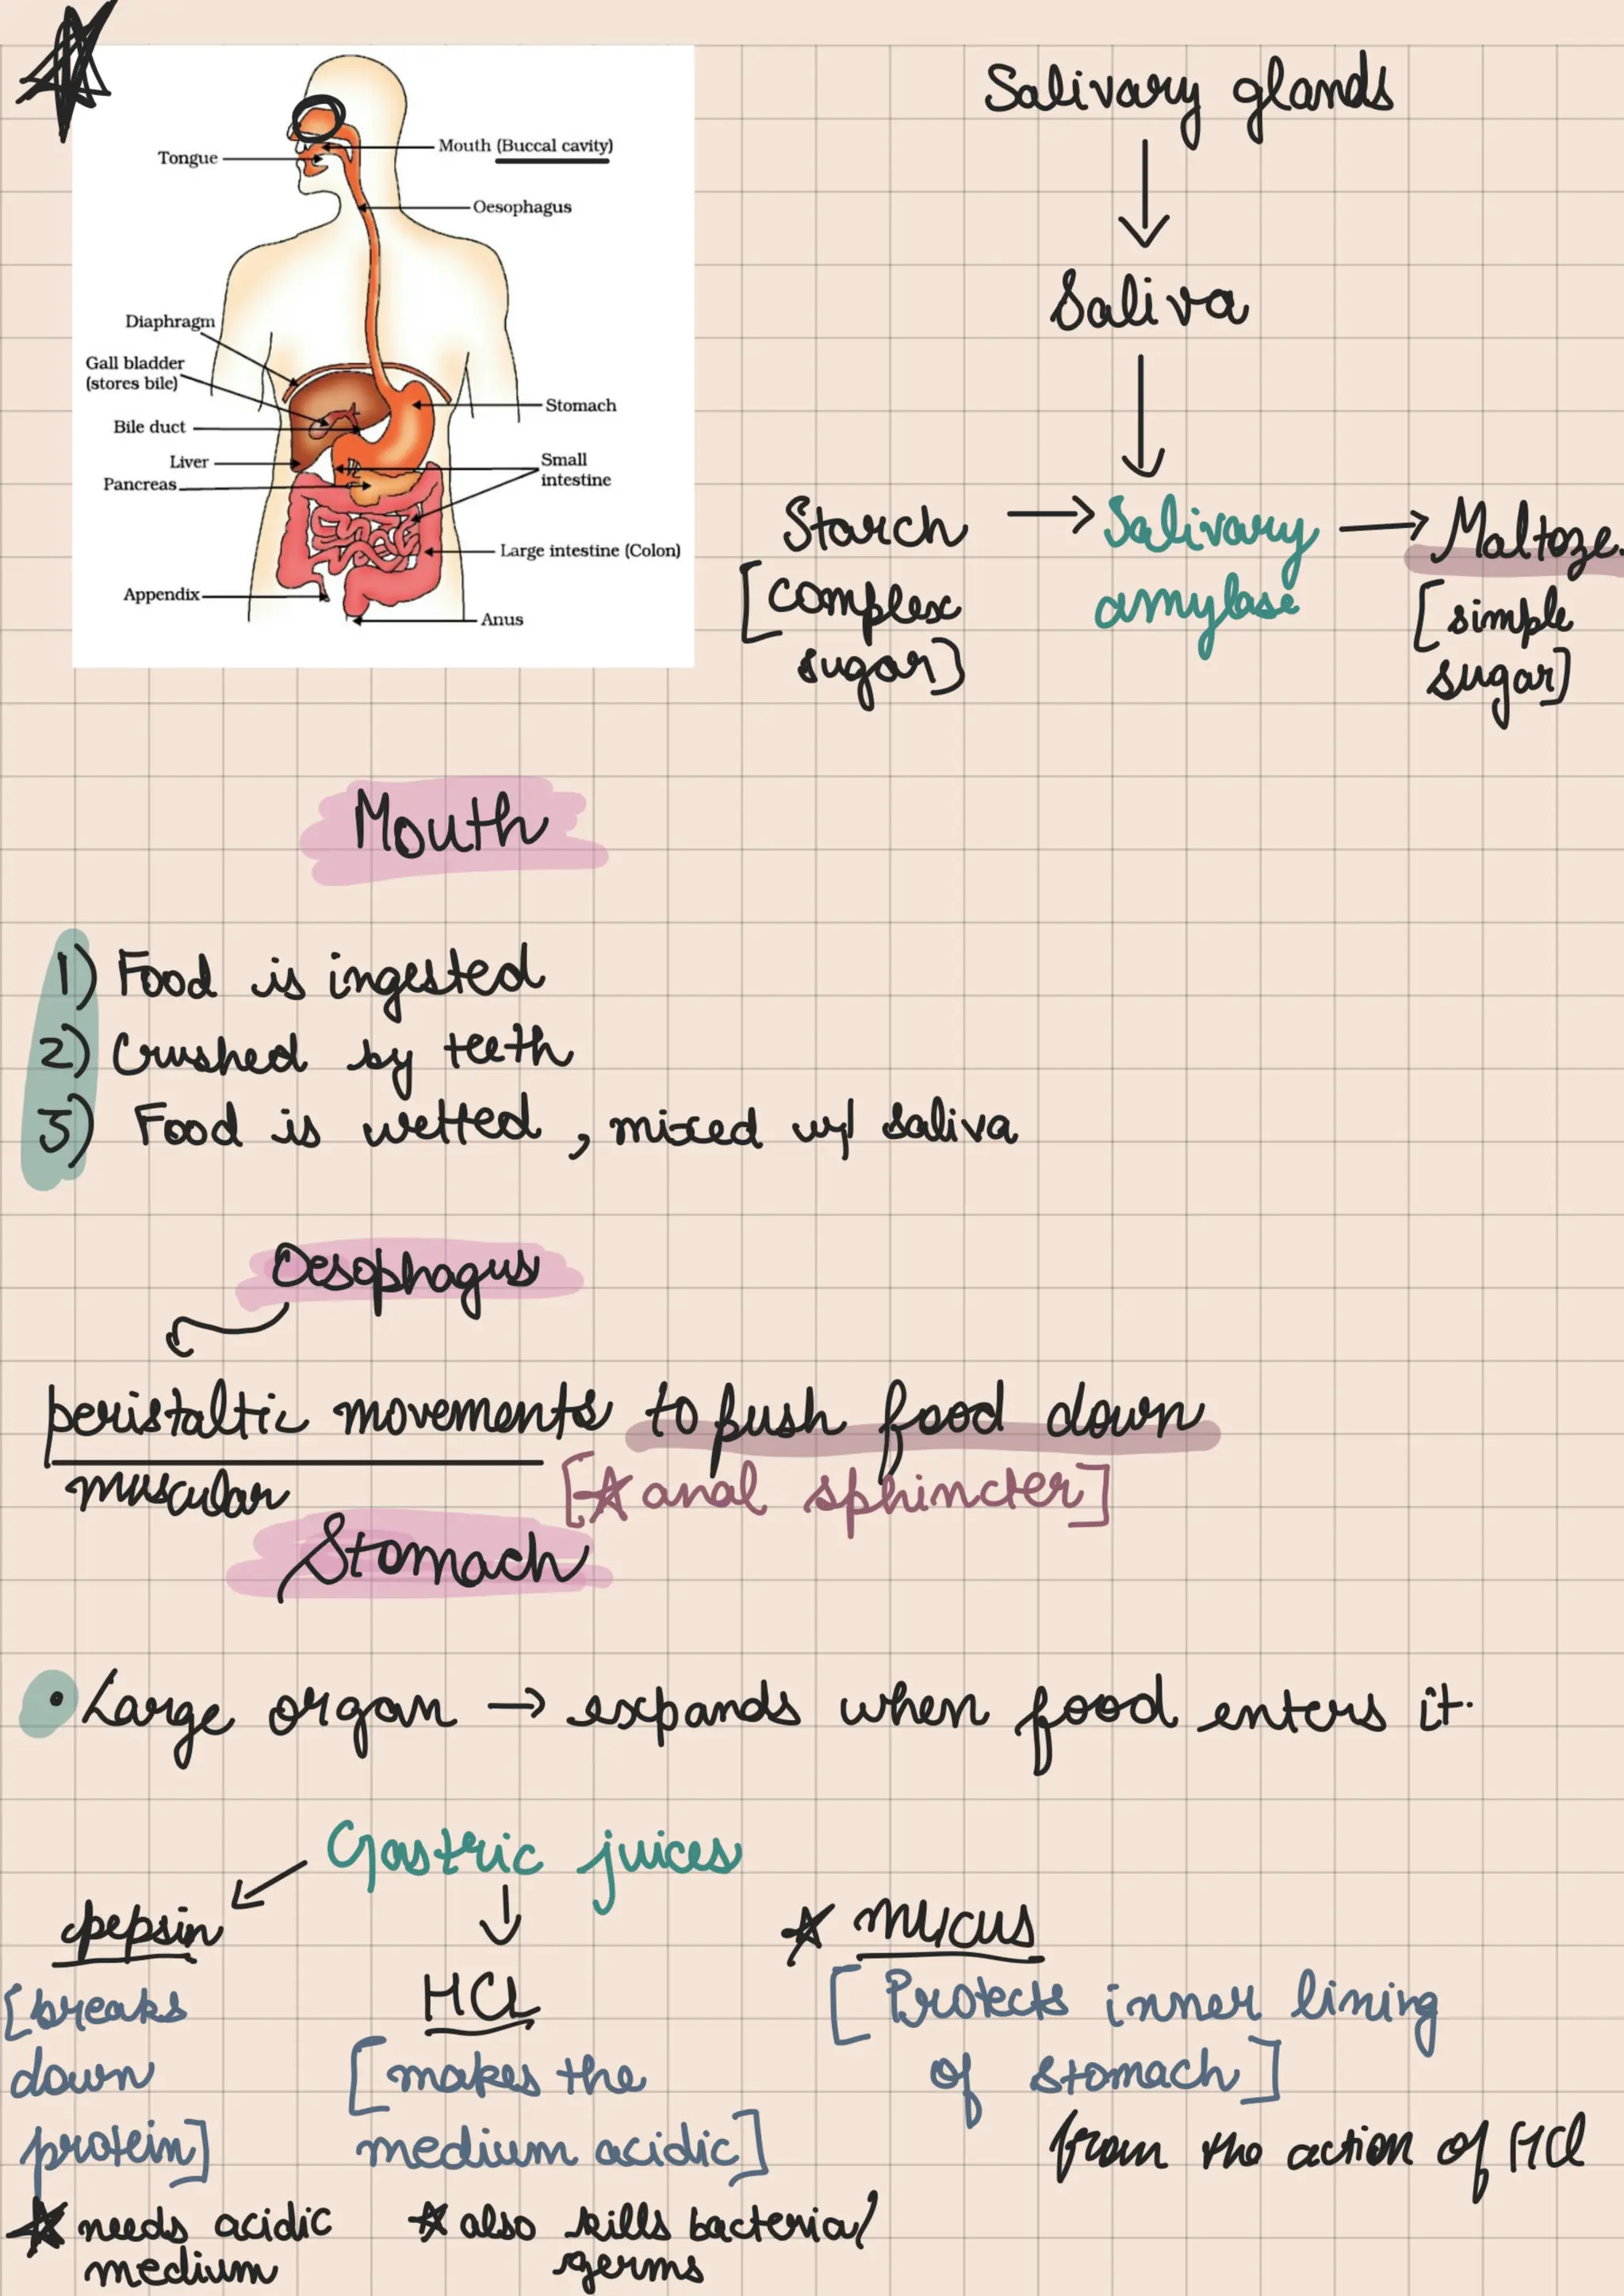 Tongue
Mouth (Buccal cavity)
Oesophagus
Diaphragm
Gall bladder
(stores bile)
Bile duct
Liver
Pancreas
Stomach
Small
intestine
Large intestine (Colon)
Appendix
Anus
Salivary glands
Saliva
Starch → Salivary → Maltoze.
[complex amylase [simple
sugar] sugar]
Mouth
1) Food is ingested
2) Crushed by teeth
3) Food is wetted, mixed w/ saliva
Oesophagus
peristaltic movements to push food down
muscular [☆ anal sphincter]
Stomach
• Large organ → expands when food enters it.
Gastric juices
pepsin
[breaks
down
protein]
☆ needs acidic
medium
HCL
[makes the
medium acidic]
☆ also kills bacteria/
germs
☆ mucus
[Protects inner lining
of stomach]
from the action of HCl